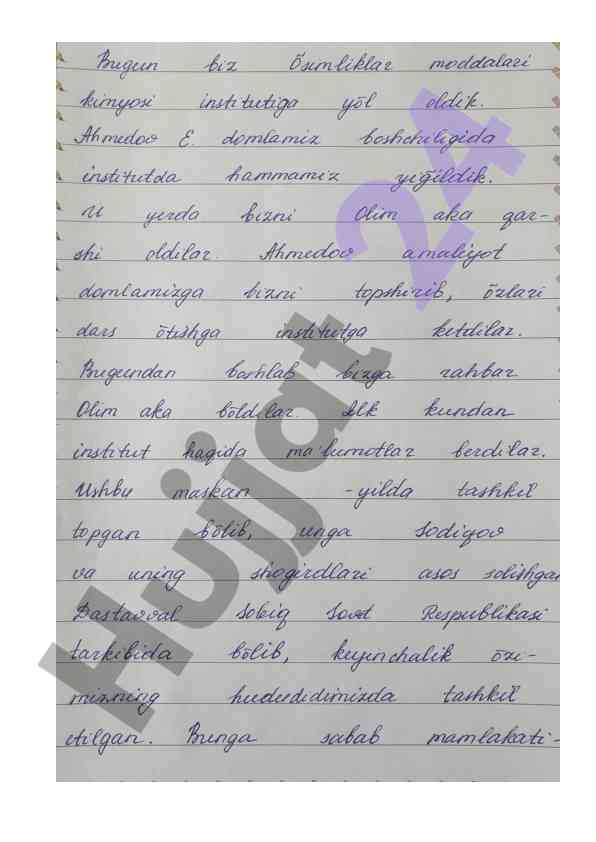 Bugun biz Õsimliklar moddalari
kimyosi institutiga yõl oldik.
Ahmedov E. domlamiz boshchiligida
institutda hammamiz yiğildik.
U yerda bizni Olim aka qar-
shi oldilar. Ahmedov amaliyot
domlamizga bizni topshirib, õzlari
dars õtishga institutga ketdilar.
Bugundan boshlab bizga rahbar
Olim aka bõldilar. Ilk kundan
institut haqida ma'lumotlar berdilar.
Ushbu maskan -yilda tashkil
topgan bõlib, unga Sodiqov
va uning shogirdlari asos solishgan
Dastavval Sobiq Sovet Respublikasi
tarkibida bõlib, keyinchalik õzi-
mizning hududidimizda tashkil
etilgan. Bunga sabab mamlakati-
Hujjat 24